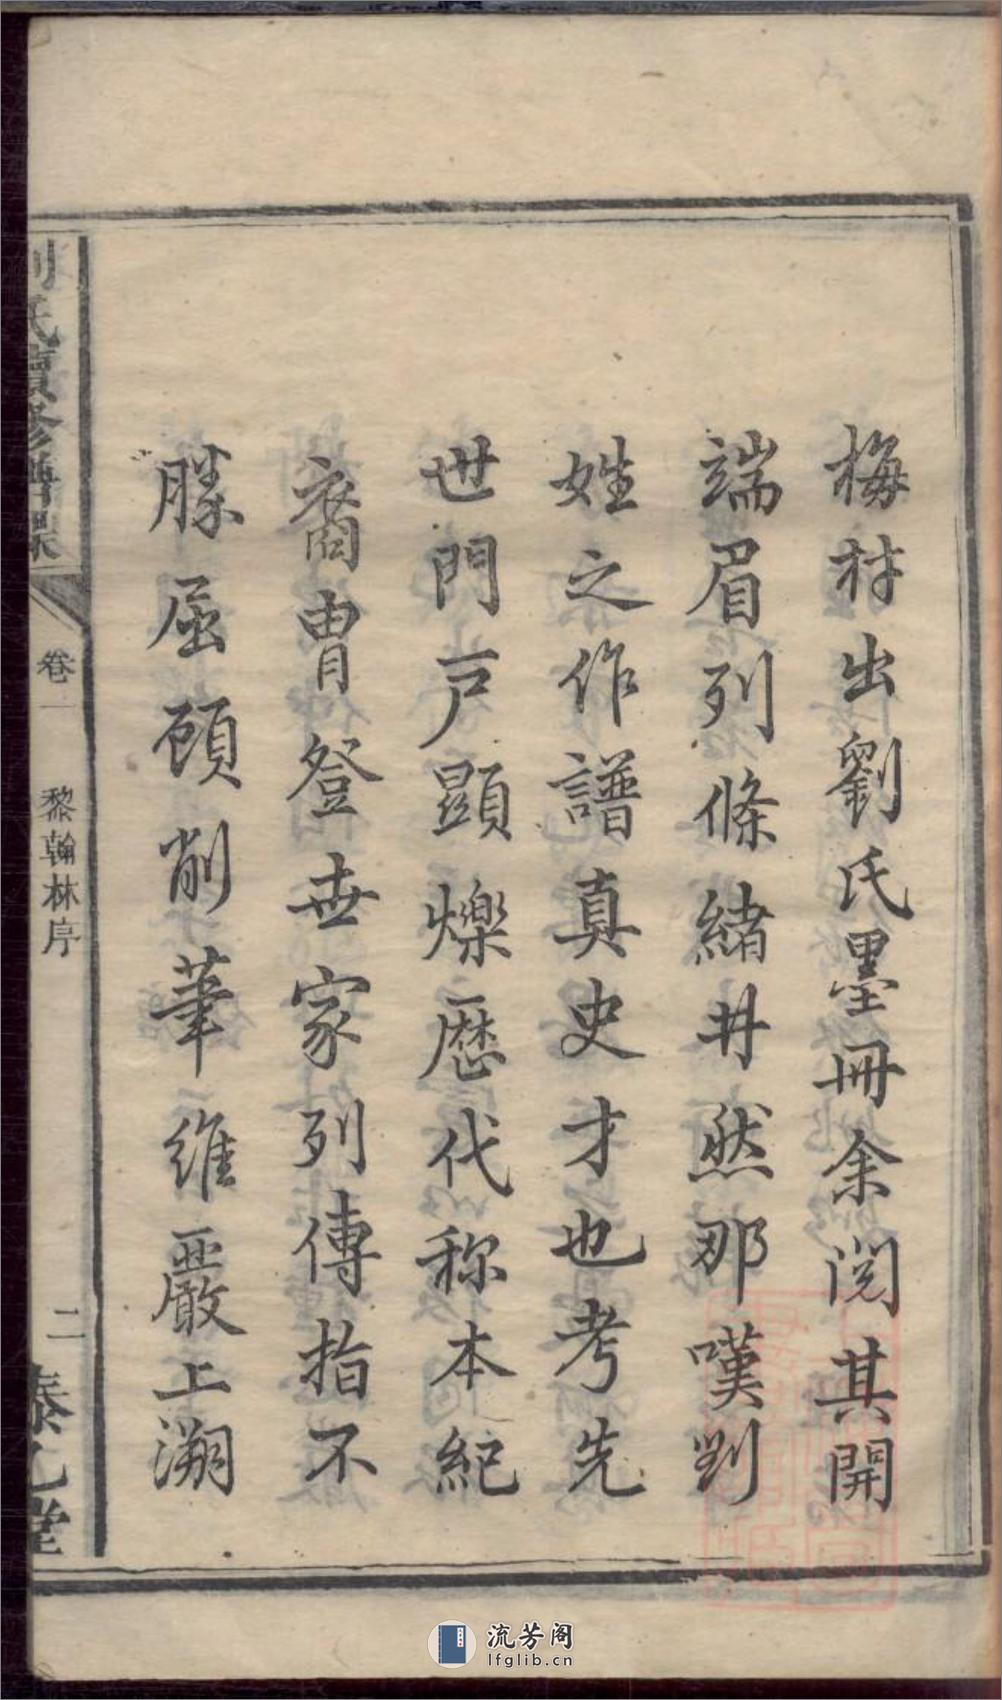 梅村出劉氏墨冊余閱其開
端眉列條緒井然那嘆刘
姓之作譜真史才也考先
世門戸顯爍歷代称本紀
裔冑登世家列傳指不
勝屈顧削筆維嚴上溯
劉氏續修譜牒
卷一
黎翰林序
二
泰乙堂
流芳阁
lfglib.cn